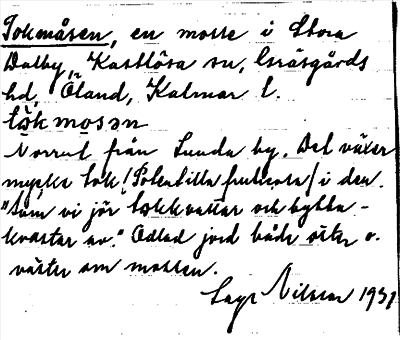 Tokmåsen, en mosse i Stora
Dalby, Kastlösa sn, Gräsgårds
hd, Öland, Kalmar l.
tɷkmosən
Norrut från Lunda by. Det växer
mycke tok (Potentilla fruticosa) i den.
"Som vi jör tokkvastar och bykka-
kvastar av." Odlad jord både öster o.
väster om mossen.
Nilsson 1931